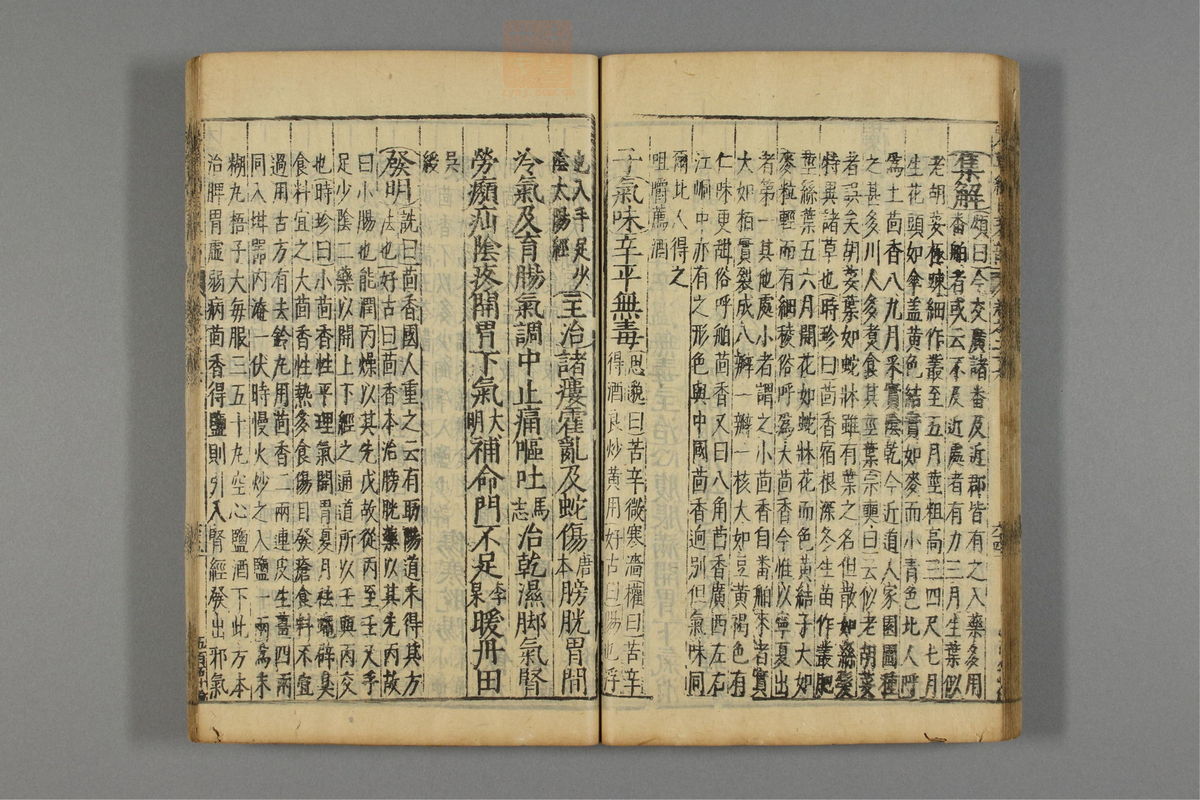 集解 頌曰今交廣諸番及近郡皆有之入藥多用
番舶者或云不及近處者有力三月生葉似
老胡荽極疎細作叢至五月莖粗高三四尺七月
生花頭如傘盖黄色結實如麥而小青色北人呼
爲土茴香八九月采實陰乾今近道人家園圃種
之甚多川人多煮食其莖葉宗奭曰云似老胡荽
者誤矣胡荽葉如蛇牀雖有葉之名但散如絲髮
特異諸草也時珍曰茴香宿根深冬生苗作叢肥
莖絲葉五六月開花如蛇牀花而色黄結子大如
麥粒輕而有細稜俗呼爲大茴香今惟以寧夏出
者第一其他處小者謂之小茴香自番舶來者實
大如栢實裂成八瓣一瓣一核大如豆黄褐色有
仁味更甜俗呼舶茴香又曰八角茴香廣西左右
江峒中亦有之形色與中國茴香逈別但氣味同
爾北人得之
咀嚼薦酒
子氣味辛平無毒 思邈曰苦辛微寒濇權曰苦辛
得酒良炒黄用好古曰陽也浮
也入手足少
陰太陽經 主治諸瘻霍亂及蛇傷唐本膀胱胃間
冷氣及育腸氣調中止痛嘔吐馬志治乾濕脚氣腎
勞㿗疝陰疼開胃下氣大明補命門不足李杲暖丹田
吳
綬
發明 詵曰茴香國人重之云有助陽道未得其方
法也好古曰茴香本治膀胱藥以其先丙故
曰小腸也能潤丙燥以其先戊故從丙至壬又手
足少陰二藥以開上下經之通道所以壬與丙交
也時珍曰小茴香性平理氣開胃夏月祛蠅辟臭
食料宜之大茴香性熱多食傷目發瘡食料不宜
過用古方有去鈴丸用茴香二兩連皮生薑四兩
同入坩器内淹一伏時慢火炒之入鹽一兩爲末
糊丸梧子大每服三五十丸空心鹽酒下此方本
治脾胃虛弱病茴香得鹽則引入腎經發出邪氣